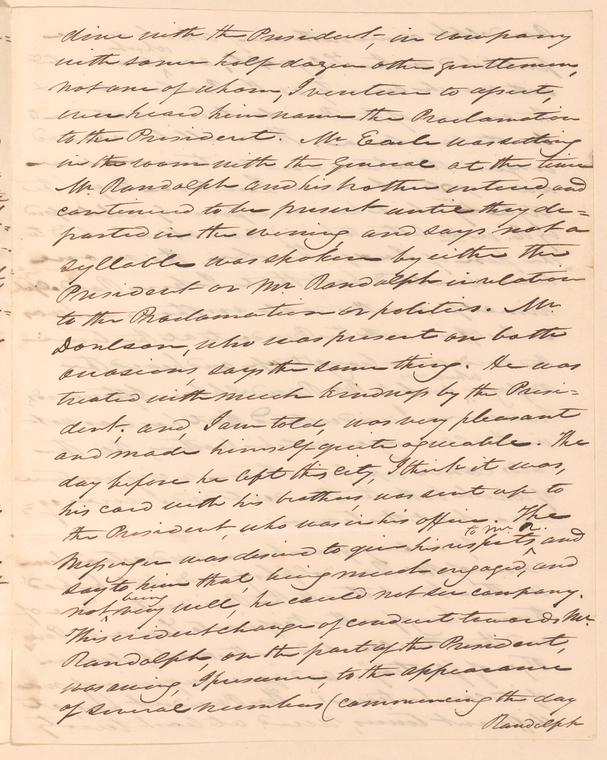 dine with the President, in company
with some half dozen other gentlemen,
not one of whom, I venture to assert,
ever heard him name the Proclamation
to the President. Mr. Earle was sitting
in the room with the General at the time
Mr. Randolph and his brother entered, and
continued to be present until they de=
parted in the evening and says not a
syllable was spoken by either the
President or Mr. Randolph in relation
to the Proclamation or politics. Mr.
Donlson, who was present on both
occasions, says the same thing. He was
treated with much kindness by the Presi=
dent, and, I am told, was very pleasant
and made himself quite agreeable. The
day before he left this City, I think it was,
his card with his brothers, was sent up to
the President, who was in his office. The
to Mr. R.
Messenger was desired to give his respects ^ and
say to him that, being much engaged, and
being
not ^ very well, he could not see company.
This evident change of conduct towards Mr.
Randolph, on the part of the President,
was owing, I presume, to the appearance
of several numbers (commencing the day
Randolph